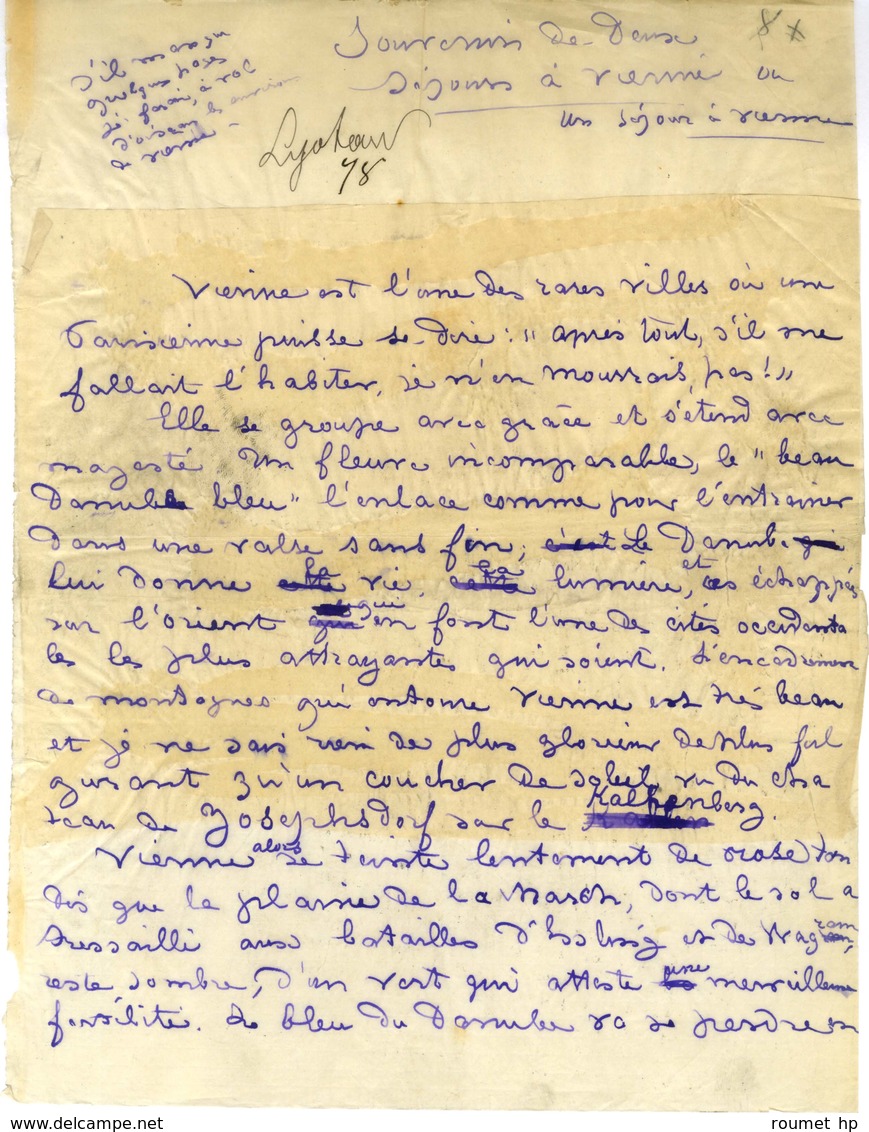 8 x
Souvenirs de Deux
Séjours à Vienne ou
un séjour à Vienne
s'il manque
quelques pages
je ferai, à vol
d'oiseau les environs
de Vienne -
78
Vienne est l'une des rares villes où une
Parisienne puisse se dire : " après tout, s'il me
fallait l'habiter, je n'en mourrais pas ! "
Elle se groupe avec grâce et s'étend avec
majesté Un fleuve incomparable, le " beau
Danube bleu " l'enlace comme pour l'entrainer
Dans une valse sans fin ; c'est Le Danube qui
lui donne la vie, sa lumière, et ces échappés
sur l'Orient qui en font l'une des cités occidenta
les les plus attrayantes qui soient. L'encadrement
de montagnes qui entoure Vienne est très beau
et je ne sais rien de plus glorieux de plus ful
gurant qu'un coucher de soleil, vu du cha
teau de Josephsdorf sur le Kalhenberg.
Vienne alors se teinte lentement de rose tan
dis que la plaine de la March, dont le sol a
tressailli aux batailles d'Essling et de Wagram,
reste sombre, d'un vert qui atteste une merveilleuse
fertilité. Le bleu du Danube va se perdre en
roumet hp